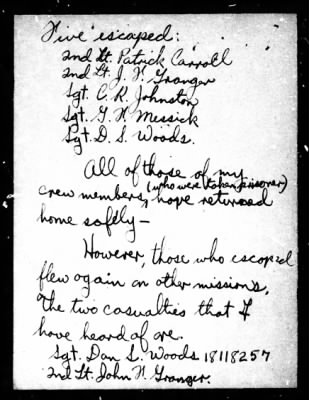 Five escaped:
2nd Lt. Patrick Carroll
2nd Lt. J. N. Granger
Sgt. C. R. Johnston
Sgt. G. H. Messick
Sgt. D. L. Woods.
All of those of my
(who were taken prisoner)
crew members, hope returned
home safely—
However, those who escaped
flew again on other missions.
The two casualties that I
have heard of are.
Sgt. Dan L. Woods 18118257
2nd Lt. John N. Granger.